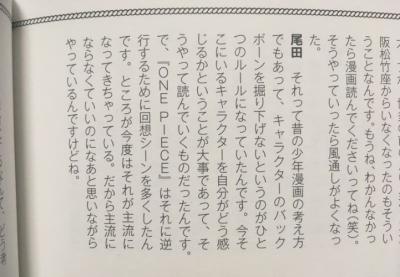 阪松竹座からいなくなったのもそうい
うことなんです。もうね、わかんなかっ
たら漫画読んでくださいってね(笑)。
そうやっていったら風通しがよくなっ
た。
尾田　それって昔の少年漫画の考え方
でもあって、キャラクターのバック
ボーンを掘り下げないというのがひと
つのルールになっていたんです。今そ
こにいるキャラクターを自分がどう感
じるかということが大事であって、そ
うやって読んでいくものだったんです。
で、『ONE PIECE』はそれに逆
行するために回想シーンを多くしたん
です。ところが今度はそれが主流に
なってきちゃっている。だから主流に
ならなくていいのになあと思いながら
やっているんですけどね。